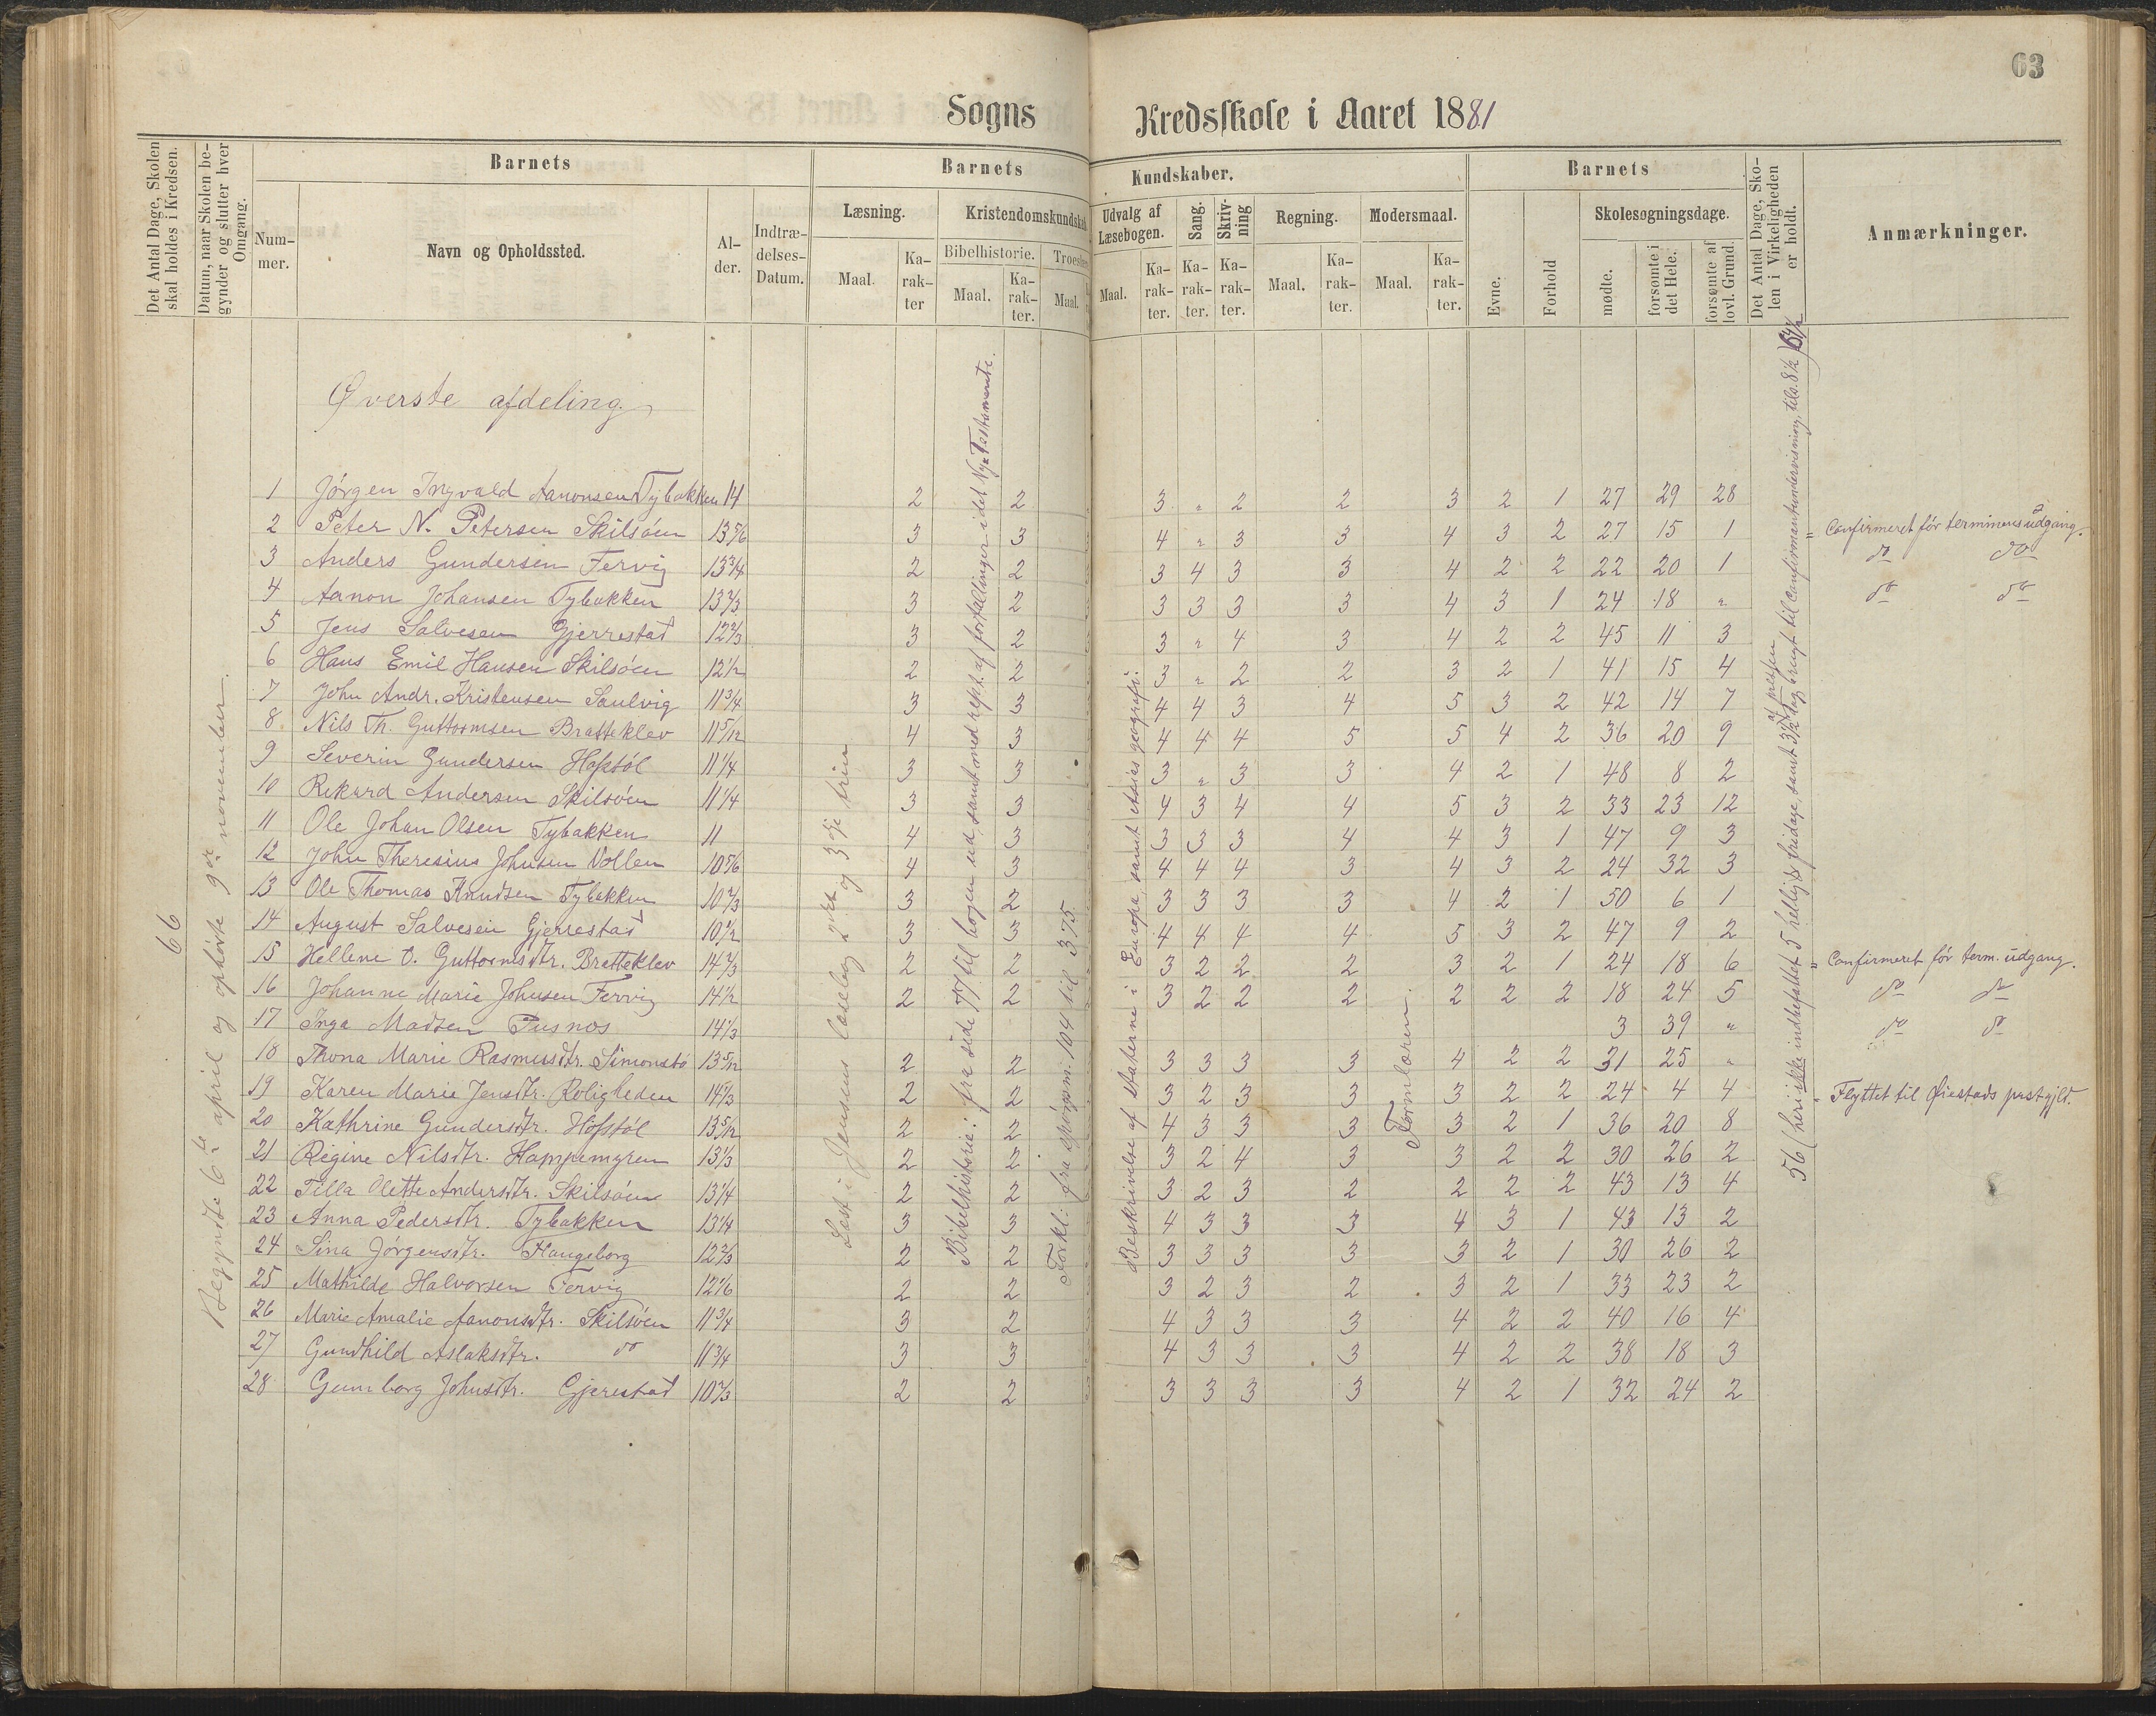 63
Sogns Kredsskole i Aaret 1881
Det Antal Dage, Skolen skal holdes i Kredsen.
Datum, naar Skolen begynder og slutter hver Omgang.
Barnets
Nummer.
Navn og Opholdssted.
Alder.
Indtrædelses-Datum.
Barnets Kundskaber.
Læsning.
Maal.
Karakter
Kristendomskundskab
Bibelhistorie.
Maal.
Karakter.
Maal.
Udvalg af Læsebogen.
Maal.
Karakter.
Sang.
Karakter.
Skrivning
Karakter.
Regning.
Maal.
Karakter.
Modersmaal.
Maal.
Karakter.
Barnets
Evne.
Forhold
Skolesøgningsdage.
mødte.
forsømte i det Hele.
forsømte af lovl. Grund.
Det Antal Dage, Skolen i Virkeligheden er holdt.
Anmærkninger.
66
Begyndte 6te april og ophørte 9de november.
Øverste afdeling
Læst i Jensens læsebog 2det og 3die trin
Bibelhistorie: fra side 77 til bogen ud, samt med rept. af fortællinger i det Ny-Testamente.
Forkl: fra spørgsm. 104 til 375.
Beskrivelse af Staterne i Europa, samt Asiens geografi.
Formlæren.
56 (heri ikke indbefattet 5 hellig & fridage, samt 3½ dag brugt til Confirmantundervisning, tils. 8½) 64½
af præsten
1 Jørgen Ingvald Aanonsen Tybakken 14 2 2 3 " 2 2 3 2 1 27 29 28
2 Peter N. Petersen Skilsøen 13 5/6 3 3 4 " 3 3 4 3 2 27 15 1 = Confirmeret før terminens udgang.
3 Anders Gundersen Fervig 13 3/4 2 2 3 4 3 3 4 2 2 22 20 1 do do
4 Aanon Johansen Tybakken 13 2/3 3 2 3 3 3 3 4 3 1 24 18 " do do
5 Jens Salvesen Gjerrestad 12 2/3 3 2 3 " 4 3 4 2 2 45 11 3
6 Hans Emil Hansen Skilsøen 12 1/2 2 2 3 " 2 2 3 2 1 41 15 4
7 John Andr. Kristensen Saulvig 11 3/4 3 3 4 4 3 4 5 3 2 42 14 7
8 Nils Th. Guttormsen Bratteklev 11 5/12 4 3 4 4 4 5 5 4 2 36 20 9
9 Severin Gundersen Hofstøl 11 1/4 3 3 3 " 3 3 4 2 1 48 8 2
10 Rikard Andersen Skilsøen 11 1/4 3 3 4 3 4 4 5 3 2 33 23 12
11 Ole Johan Olsen Tybakken 11 4 3 3 3 3 4 4 3 1 47 9 3
12 John Theresius Johnsen Vollen 10 5/6 4 3 4 4 4 3 4 3 2 24 32 3
13 Ole Thomas Knudsen Tybakken 10 2/3 3 2 3 3 3 3 4 2 1 50 6 1
14 August Salvesen Gjerrestad 10 1/2 3 3 4 4 4 4 5 3 2 47 9 2
15 Hellene O. Guttormsdtr. Bratteklev 14 2/3 2 2 3 2 2 2 3 2 1 24 18 6 = Confirmeret før term. udgang.
16 Johanne Marie Johnsen Fervig 14 1/2 2 2 3 2 2 2 2 2 2 18 24 5 do do
17 Inga Madsen Pusnes 14 1/3 3 39 " do do
18 Thona Marie Rasmusdtr. Simonstø 13 5/12 2 2 3 3 3 3 4 2 2 31 25 "
19 Karen Marie Jensdtr. Roligheden 14 1/3 2 2 3 2 3 3 3 2 2 24 4 4 Flyttet til Øiestads prestgjld.
20 Kathrine Gundersdtr. Hofstøl 13 5/12 2 2 4 3 3 3 3 2 1 36 20 8
21 Regine Nilsdtr. Happemyren 13 1/3 2 2 3 2 4 3 3 2 2 30 26 2
22 Tilla Olette Andersdtr. Skilsøen 13 1/4 2 2 3 2 3 2 2 2 2 43 13 4
23 Anna Pedersdtr. Tybakken 13 1/4 3 3 4 3 3 3 4 3 1 43 13 2
24 Sina Jørgensdtr. Haugeborg 12 2/3 2 2 3 3 3 3 3 2 1 30 26 2
25 Mathilde Halvorsen Fervig 12 1/6 2 2 3 2 3 2 3 2 1 33 23 2
26 Marie Amalie Aanonsdtr. Skilsøen 11 3/4 3 2 4 3 3 3 4 2 2 40 16 4
27 Gundhild Aslaksdtr. do 11 3/4 3 3 4 3 3 3 4 2 2 38 18 3
28 Gunborg Johnsdtr. Gjerestad 10 2/3 2 2 3 3 3 3 4 2 1 32 24 2